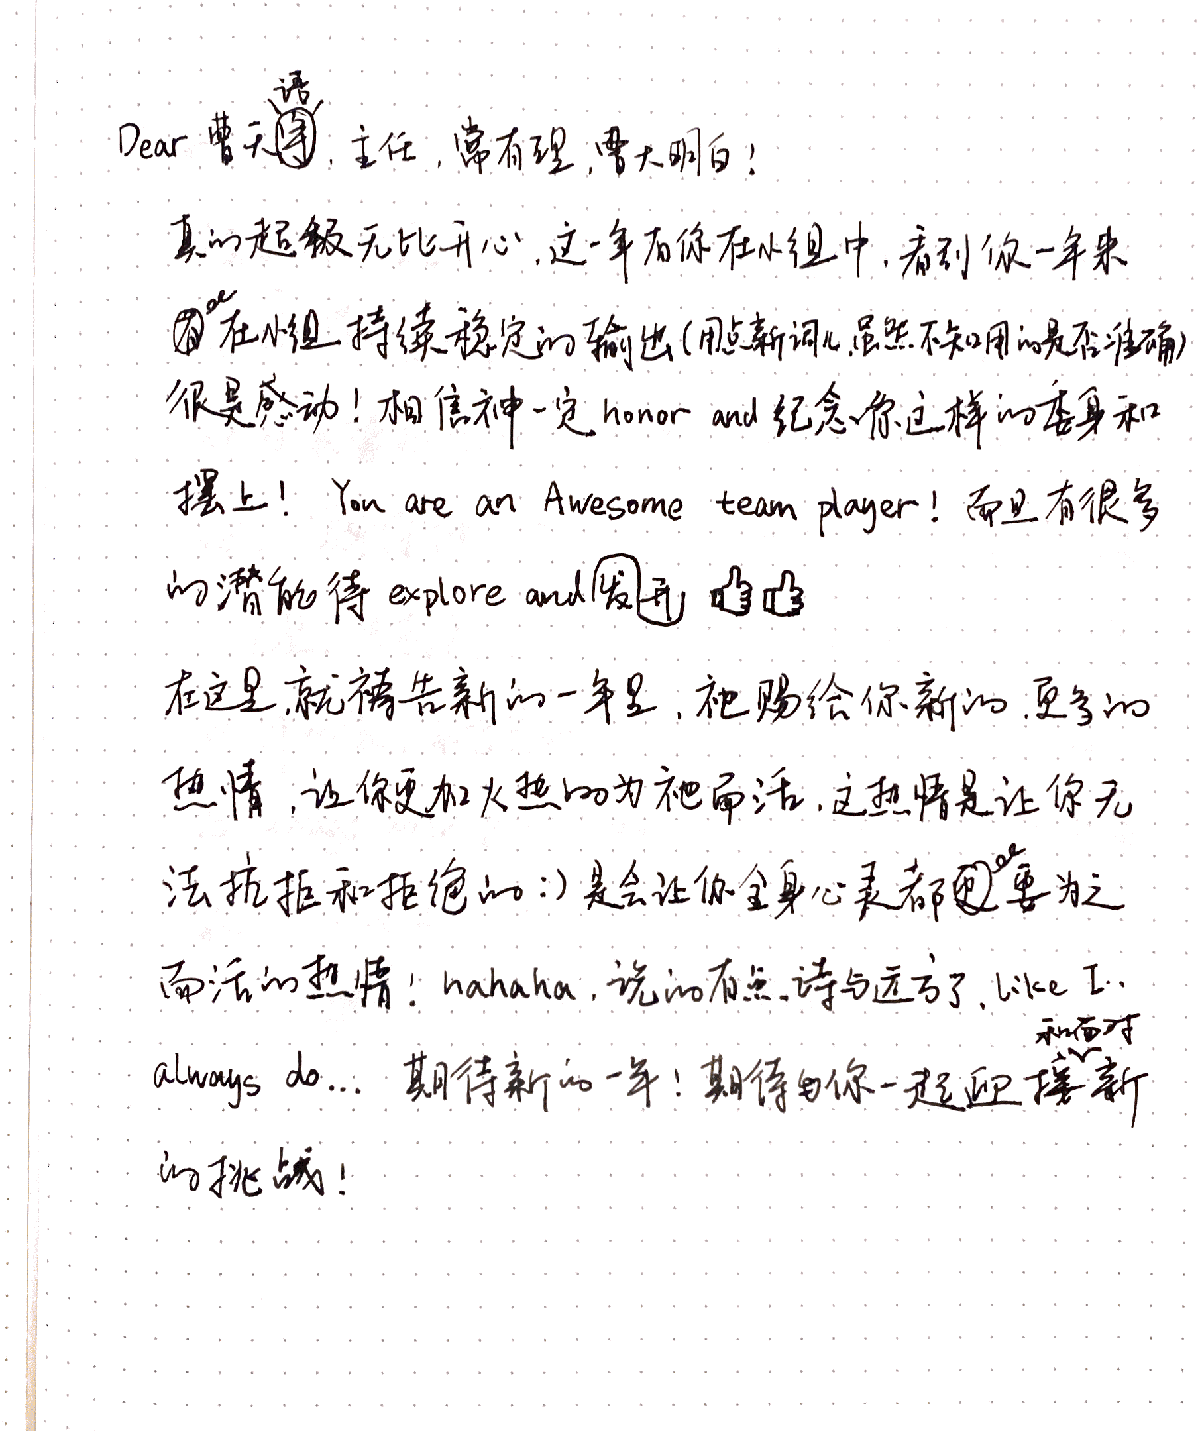 语
Dear 曹天, 主任, 常有理, 曹大明白!
真的超级无比开心, 这一年有你在小组中, 看到你一年来
在小组持续稳定的输出(用点新词儿, 虽然不知用的是否准确)
很是感动! 相信神一定 honor and 纪念你这样的委身和
摆上! You are an Awesome team player! 而且有很多
的潜能待 explore and 发开 👍👍
在这里, 就祷告新的一年里, 祂赐给你新的, 更多的
热情, 让你更加火热的为祂而活, 这热情是让你无
法抗拒和拒绝的:) 是会让你全身心灵都要为之
而活的热情! hahaha, 说的有点诗与远方了, like I..
和面对
always do... 期待新的一年! 期待与你一起迎接新
的挑战!